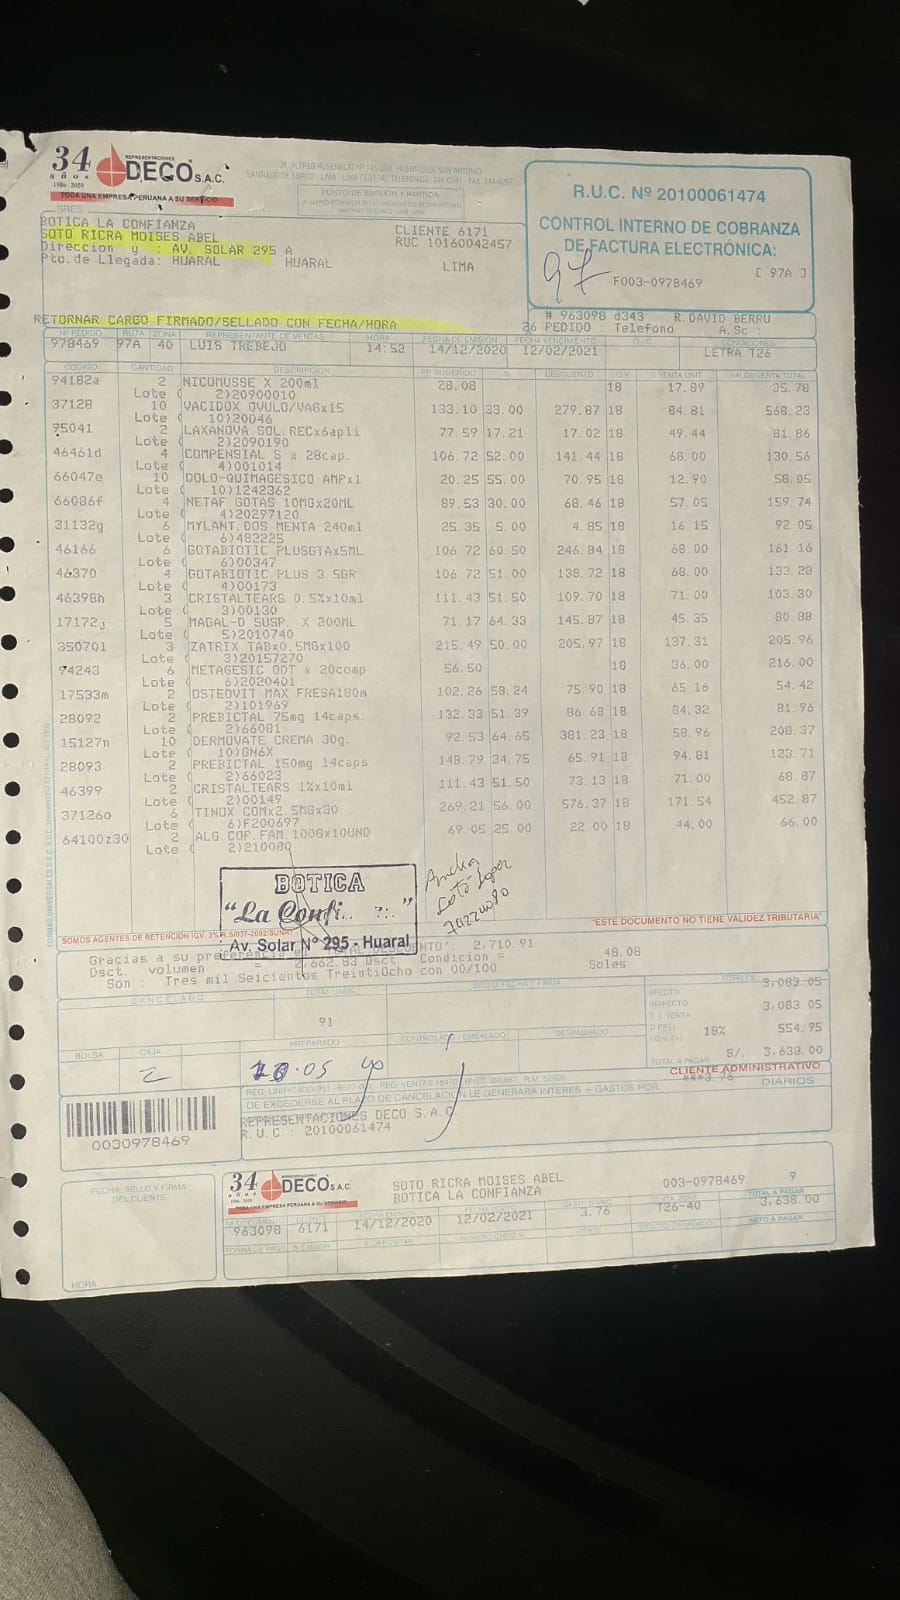 34 años 1986-2020
REPRESENTACIONES DECO S.A.C.
TODA UNA EMPRESA PERUANA A SU SERVICIO
PUNTO DE EMISION Y PARTIDA
R.U.C. Nº 20100061474
CONTROL INTERNO DE COBRANZA
DE FACTURA ELECTRÓNICA:
97
[ 97A ]
F003-0978469
SRES
BOTICA LA CONFIANZA
SOTO RICRA MOISES ABEL
Direccion y : AV. SOLAR 295 A
Pto.de Llegada: HUARAL HUARAL LIMA
CLIENTE 6171
RUC 10160042457
RETORNAR CARGO FIRMADO/SELLADO CON FECHA/HORA
# 963098 d343 R.DAVID BERRU
26 PEDIDO : Telefono A.Sc :
Nº PEDIDO RUTA ZONA REPRESENTANTE DE VENTAS HORA FECHA DE EMISION FECHA VENCIMIENTO O.C. CONDICIONES
978469 97A 40 LUIS TREBEJO 14:52 14/12/2020 12/02/2021 LETRA T26
CODIGO CANTIDAD DESCRIPCION P.P. SUGERIDO % DESCUENTO I.G.V V.VENTA UNIT VALOR VENTA TOTAL
94182a 2 NICOMUSSE X 200ml 28.08 18 17.89 35.78
Lote ( 2)20900010
37128 10 VACIDOX OVULO/VAGx15 133.10 33.00 279.87 18 84.81 568.23
Lote ( 10)20046
95041 2 LAXANOVA SOL.RECx6apli 77.59 17.21 17.02 18 49.44 81.86
Lote ( 2)2090190
46461d 4 COMPENSIAL S x 28cap. 106.72 52.00 141.44 18 68.00 130.56
Lote ( 4)001014
66047e 10 DOLO-QUIMAGESICO AMPx1 20.25 55.00 70.95 18 12.90 58.05
Lote ( 10)1242362
66086f 4 NETAF GOTAS 10MGx20ML 89.53 30.00 68.46 18 57.05 159.74
Lote ( 4)20297120
31132g 6 MYLANT.DOS MENTA 240ml 25.35 5.00 4.85 18 16.15 92.05
Lote ( 6)482225
46166 6 GOTABIOTIC PLUSGTAx5ML 106.72 60.50 246.84 18 68.00 161.16
Lote ( 6)00347
46370 4 GOTABIOTIC PLUS 3.5GR 106.72 51.00 138.72 18 68.00 133.28
Lote ( 4)00173
46398h 3 CRISTALTEARS 0.5%x10ml 111.43 51.50 109.70 18 71.00 103.30
Lote ( 3)00130
17172j 5 MAGAL-D SUSP. X 200ML 71.17 64.33 145.87 18 45.35 80.88
Lote ( 5)2010740
350701 3 ZATRIX TABx0.5MGx100 215.49 50.00 205.97 18 137.31 205.96
Lote ( 3)20157270
94243 6 METAGESIC ODT x 20comp 56.50 18 36.00 216.00
Lote ( 6)2020401
17533m 2 OSTEOVIT MAX FRESA180m 102.26 58.24 75.90 18 65.16 54.42
Lote ( 2)101969
28092 2 PREBICTAL 75mg 14caps. 132.33 51.39 86.68 18 84.32 81.96
Lote ( 2)66081
15127n 10 DERMOVATE CREMA 30g. 92.53 64.65 381.23 18 58.96 208.37
Lote ( 10)GN6X
28093 2 PREBICTAL 150mg 14caps 148.79 34.75 65.91 18 94.81 123.71
Lote ( 2)66023
46399 2 CRISTALTEARS 1%x10ml 111.43 51.50 73.13 18 71.00 68.87
Lote ( 2)00149
37126o 6 TINOX COMx2.5MGx30 269.21 56.00 576.37 18 171.54 452.87
Lote ( 6)F200697
64100z30 2 ALG.COP.FAM.100Gx10UND 69.05 25.00 22.00 18 44.00 66.00
Lote ( 2)210080
BOTICA
"La Confi
Av. Solar Nº 295 - Huaral
"ESTE DOCUMENTO NO TIENE VALIDEZ TRIBUTARIA"
SOMOS AGENTES DE RETENCION IGV. 3% R.S/037-2002/SUNAT
Gracias a su preferencia 2,710.91
Dsct. volumen = 2,662.83 Dsct. Condicion = 48.08
Son : Tres mil Seicientos TreintiOcho con 00/100 Soles
CANCELADO TOTAL UNDS. SELLO FECHA Y FIRMA TOTALES
91
AFECTO 3,083.05
INAFECTO
T.V. VENTA 3,083.05
18% 554.95
TOTAL A PAGAR S/. 3,638.00
BOLSA CAJA PREPARADO CONTROLADO / EMBALADO DESPACHADO
2
CLIENTE ADMINISTRATIVO
DE EXCEDERSE AL PLAZO DE CANCELACION LE GENERARA INTERES + GASTOS POR ***3.76 DIARIOS
REPRESENTACIONES DECO S.A.C
R.U.C.: 20100061474
0030978469
FECHA, SELLO Y FIRMA
DEL CLIENTE
HORA
34 años
DECO S.A.C.
TODA UNA EMPRESA PERUANA A SU SERVICIO
SOTO RICRA MOISES ABEL
BOTICA LA CONFIANZA
003-0978469 9
Nº DOCUMENTO CLIENTE FECHA EMISION TOTAL A PAGAR
963098 6171 14/12/2020 12/02/2021 3.76 T26-40 3,638.00
FORMA DE PAGO B. EMISOR B. DEPOSITAR NUMERO CHEQUE OTROS NETO A PAGAR